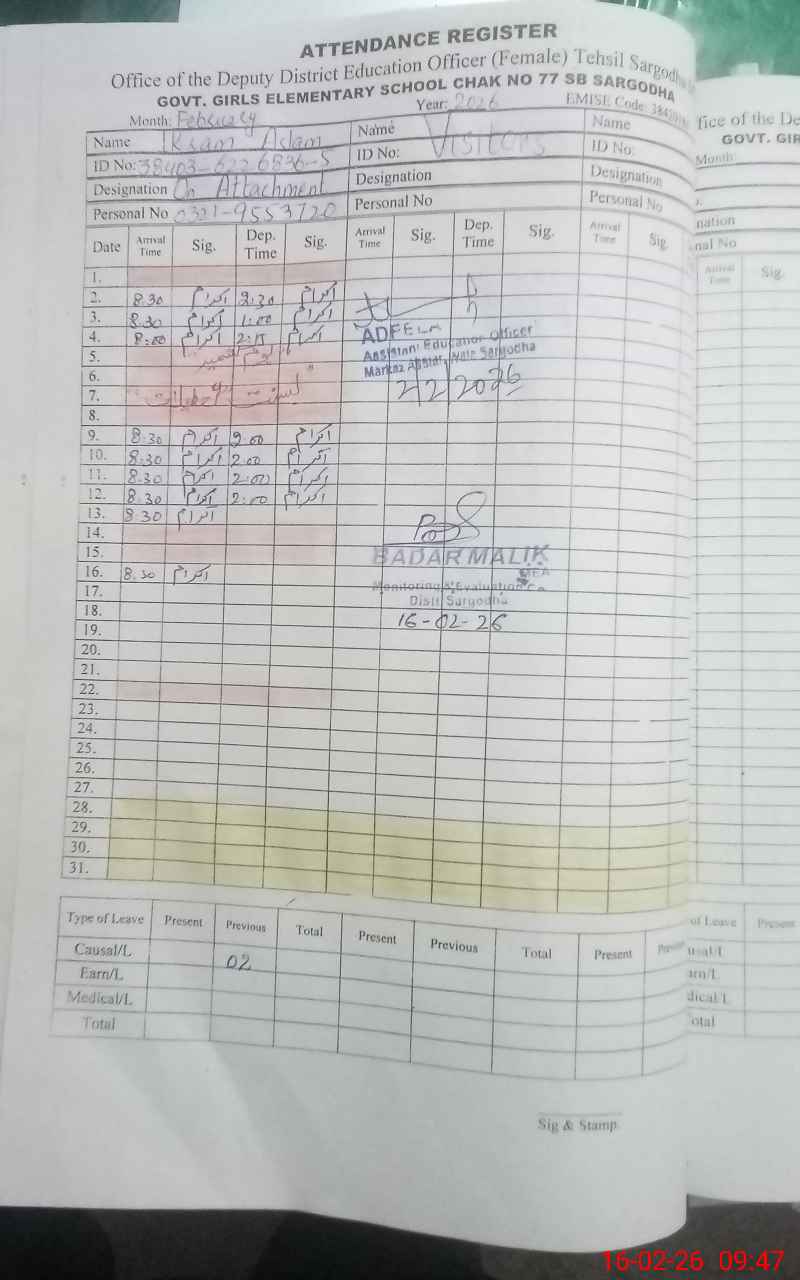 ATTENDANCE REGISTER
Office of the Deputy District Education Officer (Female) Tehsil Sargodha
GOVT. GIRLS ELEMENTARY SCHOOL CHAK NO 77 SB SARGODHA
Month: February Year: 2026 EMISE Code: 384
Name Ikram Aslam Name Visitors Name
ID No: 38403-6226836-5 ID No: ID No:
Designation On Attachment Designation Designation
Personal No 0321-9553720 Personal No Personal No
Date Arrival Time Sig. Dep. Time Sig. Arrival Time Sig. Dep. Time Sig. Arrival Time Sig.
1.
2. 8.30 اکرام 2:30 اکرام
3. 8:30 اکرام 1:00 اکرام
4. 8:00 اکرام 2:15 اکرام
ADFELA
Assistant Education Officer
5. یوم کشمیر
Markaz Sargodha
6.
7. بسنت تعطیلات
2/2/2026
8.
9. 8:30 اکرام 2:00 اکرام
10. 8:30 اکرام 2:00 اکرام
11. 8:30 اکرام 2:00 اکرام
12. 8:30 اکرام 2:00 اکرام
13. 8:30 اکرام
14.
15.
BADAR MALIK
MEA
16. 8.30 اکرام
17.
Monitoring & Evaluation
Distt Sargodha
18.
16-02-26
19.
20.
21.
22.
23.
24.
25.
26.
27.
28.
29.
30.
31.
Type of Leave Present Previous Total Present Previous Total Present Previous
Causal/L 02
Earn/L
Medical/L
Total
Sig & Stamp
fice of the De
GOVT. GIR
Month:
nation
nal No
Arrival Time Sig.
of Leave Present
usal/L
arn/L
dical/L
otal
16-02-26 09:47